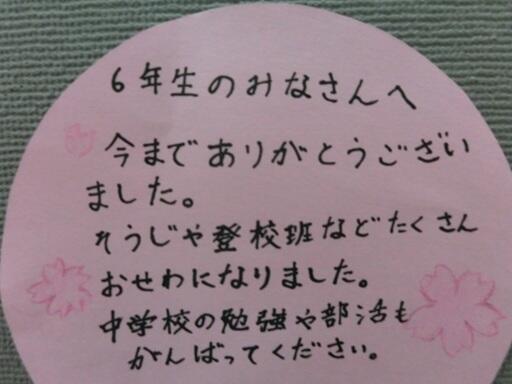 6年生のみなさんへ
今までありがとうござい
ました。
そうじや登校班などたくさん
おせわになりました。
中学校の勉強や部活も
がんばってください。